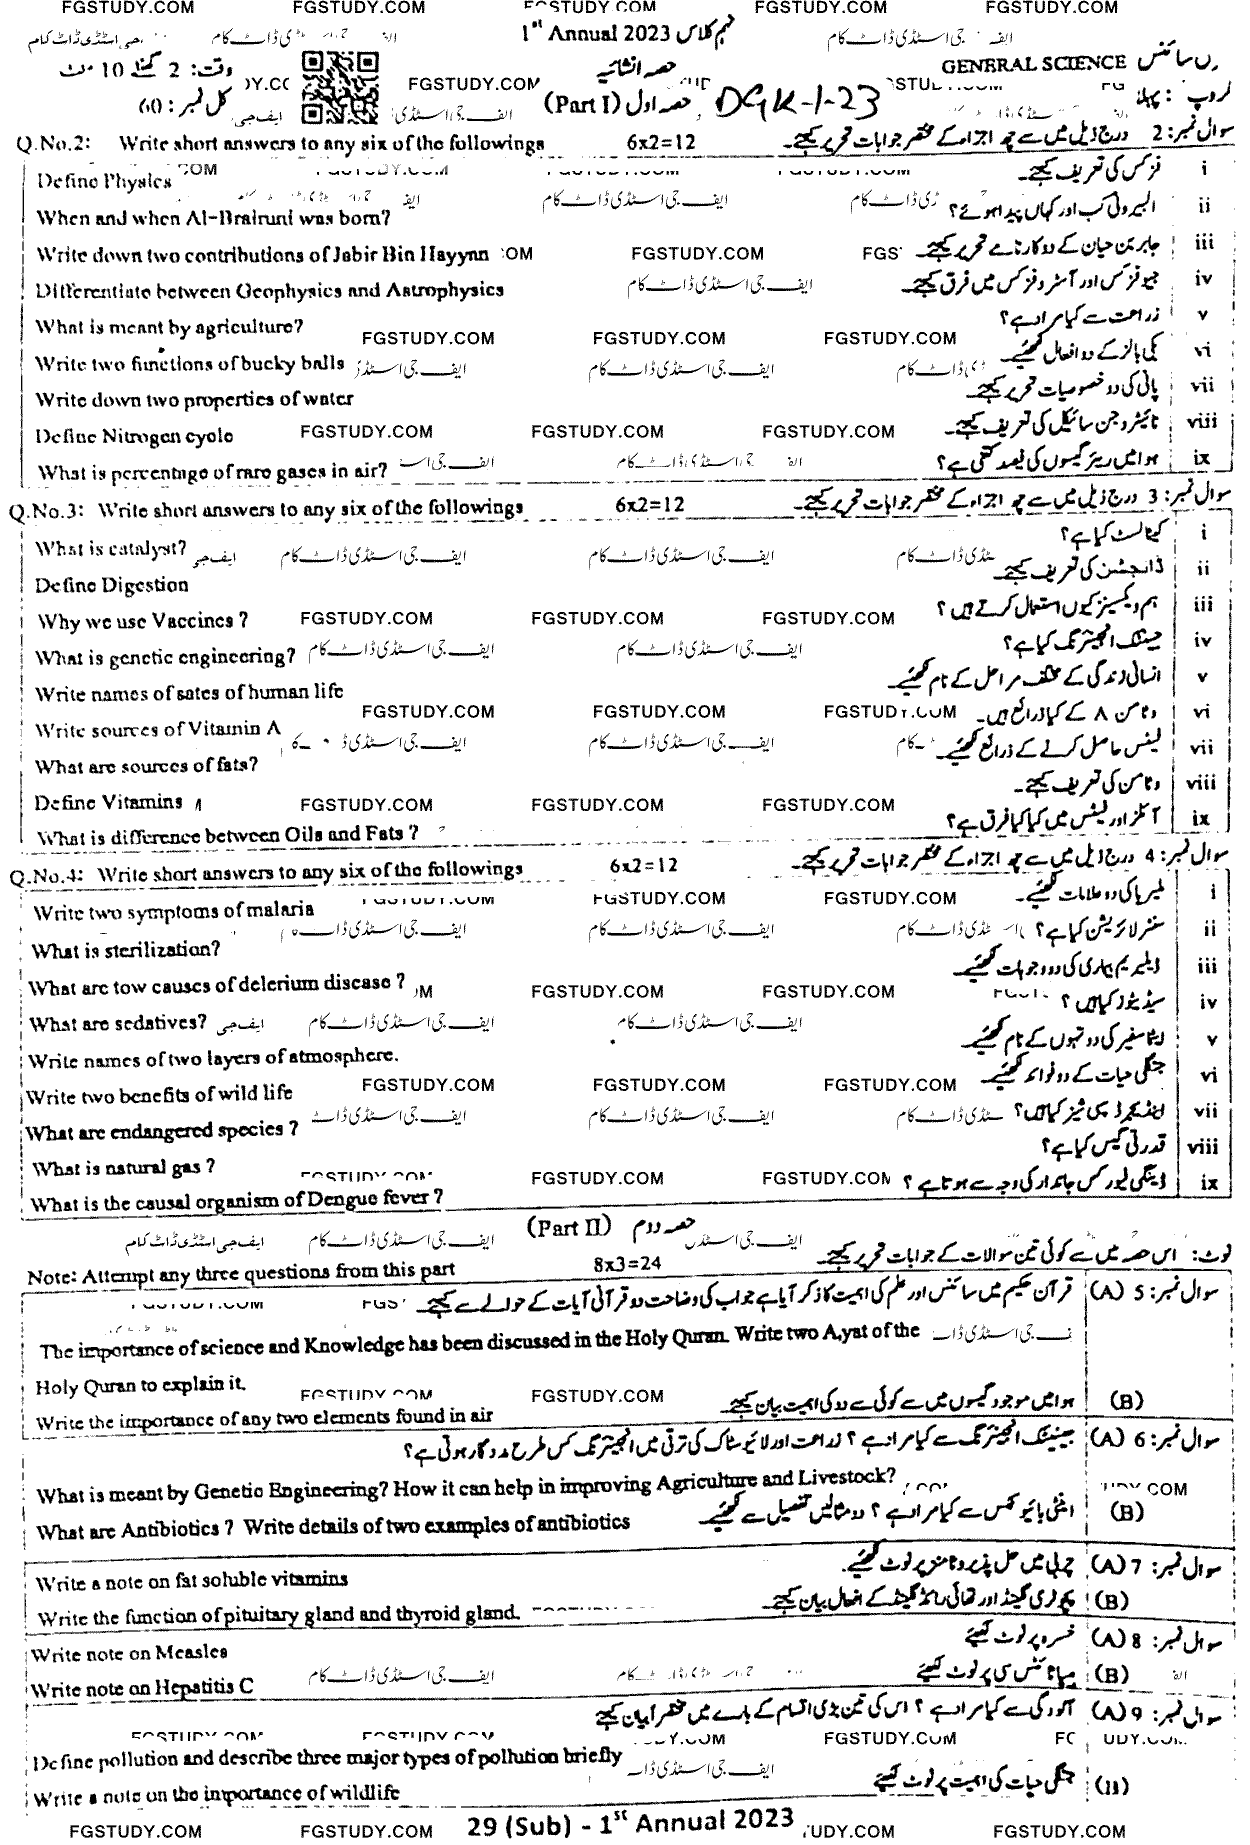 FGSTUDY.COM FGSTUDY.COM FGSTUDY.COM FGSTUDY.COM FGSTUDY.COM
1st Annual 2023 نہم کلاس
GENERAL SCIENCE جنرل سائنس
وقت: 2 گھنٹے 10 منٹ
حصہ انشائیہ
گروپ: پہلا
کل نمبر: 60
(Part I) حصہ اول DGK-1-23
Q.No.2: Write short answers to any six of the followings 6x2=12 سوال نمبر: 2 درج ذیل میں سے چھ اجزاء کے مختصر جوابات تحریر کیجئے۔
Define Physics فزکس کی تعریف کیجئے۔ i
When and when Al-Brairuni was born? البیرونی کب اور کہاں پیدا ہوئے؟ ii
Write down two contributions of Jabir Bin Hayynn جابر بن حیان کے دو کارنامے تحریر کیجئے۔ iii
Differentiate between Geophysics and Astrophysics جیوفزکس اور آسٹروفزکس میں فرق کیجئے۔ iv
What is meant by agriculture? زراعت سے کیا مراد ہے؟ v
Write two functions of bucky balls بکی بالز کے دو افعال لکھیئے۔ vi
Write down two properties of water پانی کی دو خصوصیات تحریر کیجئے۔ vii
Define Nitrogen cycle نائیٹروجن سائیکل کی تعریف کیجئے۔ viii
What is percentage of rare gases in air? ہوا میں ریئر گیسوں کی فیصد کتنی ہے؟ ix
Q.No.3: Write short answers to any six of the followings 6x2=12 سوال نمبر: 3 درج ذیل میں سے چھ اجزاء کے مختصر جوابات تحریر کیجئے۔
What is catalyst? کیٹالسٹ کیا ہے؟ i
Define Digestion ڈائجشن کی تعریف کیجئے۔ ii
Why we use Vaccines ? ہم ویکسینز کیوں استعمال کرتے ہیں؟ iii
What is genetic engineering? جینٹک انجینئرنگ کیا ہے؟ iv
Write names of sates of human life انسانی زندگی کے مختلف مراحل کے نام لکھیئے۔ v
Write sources of Vitamin A وٹامن A کے کیا ذرائع ہیں۔ vi
What are sources of fats? فیٹس حاصل کرنے کے ذرائع لکھیئے۔ vii
Define Vitamins وٹامن کی تعریف کیجئے۔ viii
What is difference between Oils and Fats ? آئلز اور فیٹس میں کیا کیا فرق ہے؟ ix
Q.No.4: Write short answers to any six of the followings 6x2=12 سوال نمبر: 4 درج ذیل میں سے چھ اجزاء کے مختصر جوابات تحریر کیجئے۔
Write two symptoms of malaria ملیریا کی دو علامات لکھیئے۔ i
What is sterilization? سٹرلائزیشن کیا ہے؟ ii
What are tow causes of delerium disease ? ڈیلیریم بیماری کی دو وجوہات لکھیئے۔ iii
What are sedatives? سیڈیٹوز کیا ہیں؟ iv
Write names of two layers of atmosphere. ایٹماسفیئر کی دو تہوں کے نام لکھیئے۔ v
Write two benefits of wild life جنگلی حیات کے دو فوائد لکھیئے۔ vi
What are endangered species ? اینڈینجرڈ سپی شیز کیا ہیں؟ vii
What is natural gas ? قدرتی گیس کیا ہے؟ viii
What is the causal organism of Dengue fever ? ڈینگی فیور کس جاندار کی وجہ سے ہوتا ہے؟ ix
(Part II) حصہ دوم
Note: Attempt any three questions from this part 8x3=24 نوٹ: اس حصہ میں سے کوئی تین سوالات کے جوابات تحریر کیجئے۔
سوال نمبر: 5 (A) قرآن حکیم میں سائنس اور علم کی اہمیت کا ذکر آیا ہے جواب کی وضاحت دو قرآنی آیات کے حوالے سے کیجئے۔
The importance of science and Knowledge has been discussed in the Holy Quran. Write two A,yat of the
Holy Quran to explain it.
(B) ہوا میں موجود گیسوں میں سے کوئی سے دو کی اہمیت بیان کیجئے۔
Write the importance of any two elements found in air
سوال نمبر: 6 (A) جینیٹک انجینئرنگ سے کیا مراد ہے؟ زراعت اور لائیو سٹاک کی ترقی میں انجینئرنگ کس طرح مددگار ہوتی ہے؟
What is meant by Genetic Engineering? How it can help in improving Agriculture and Livestock?
(B) انٹی بائیوٹکس سے کیا مراد ہے؟ دو مثالیں تفصیل سے لکھیئے۔
What are Antibiotics ? Write details of two examples of antibiotics
سوال نمبر: 7 (A) چربی میں حل پذیر وٹامنز پر نوٹ لکھیئے۔
Write a note on fat soluble vitamins
(B) پچوٹری گلینڈ اور تھائی رائڈ گلینڈ کے افعال بیان کیجئے۔
Write the function of pituitary gland and thyroid gland.
سوال نمبر: 8 (A) خسرہ پر نوٹ لکھیئے
Write note on Measles
(B) ہیپاٹائٹس سی پر نوٹ لکھیئے
Write note on Hepatitis C
سوال نمبر: 9 (A) آلودگی سے کیا مراد ہے؟ اس کی تین بڑی اقسام کے بارے میں مختصراً بیان کیجئے
Define pollution and describe three major types of pollution briefly
(B) جنگلی حیات کی اہمیت پر نوٹ لکھیئے
Write a note on the importance of wildlife
29 (Sub) - 1st Annual 2023
FGSTUDY.COM FGSTUDY.COM FGSTUDY.COM